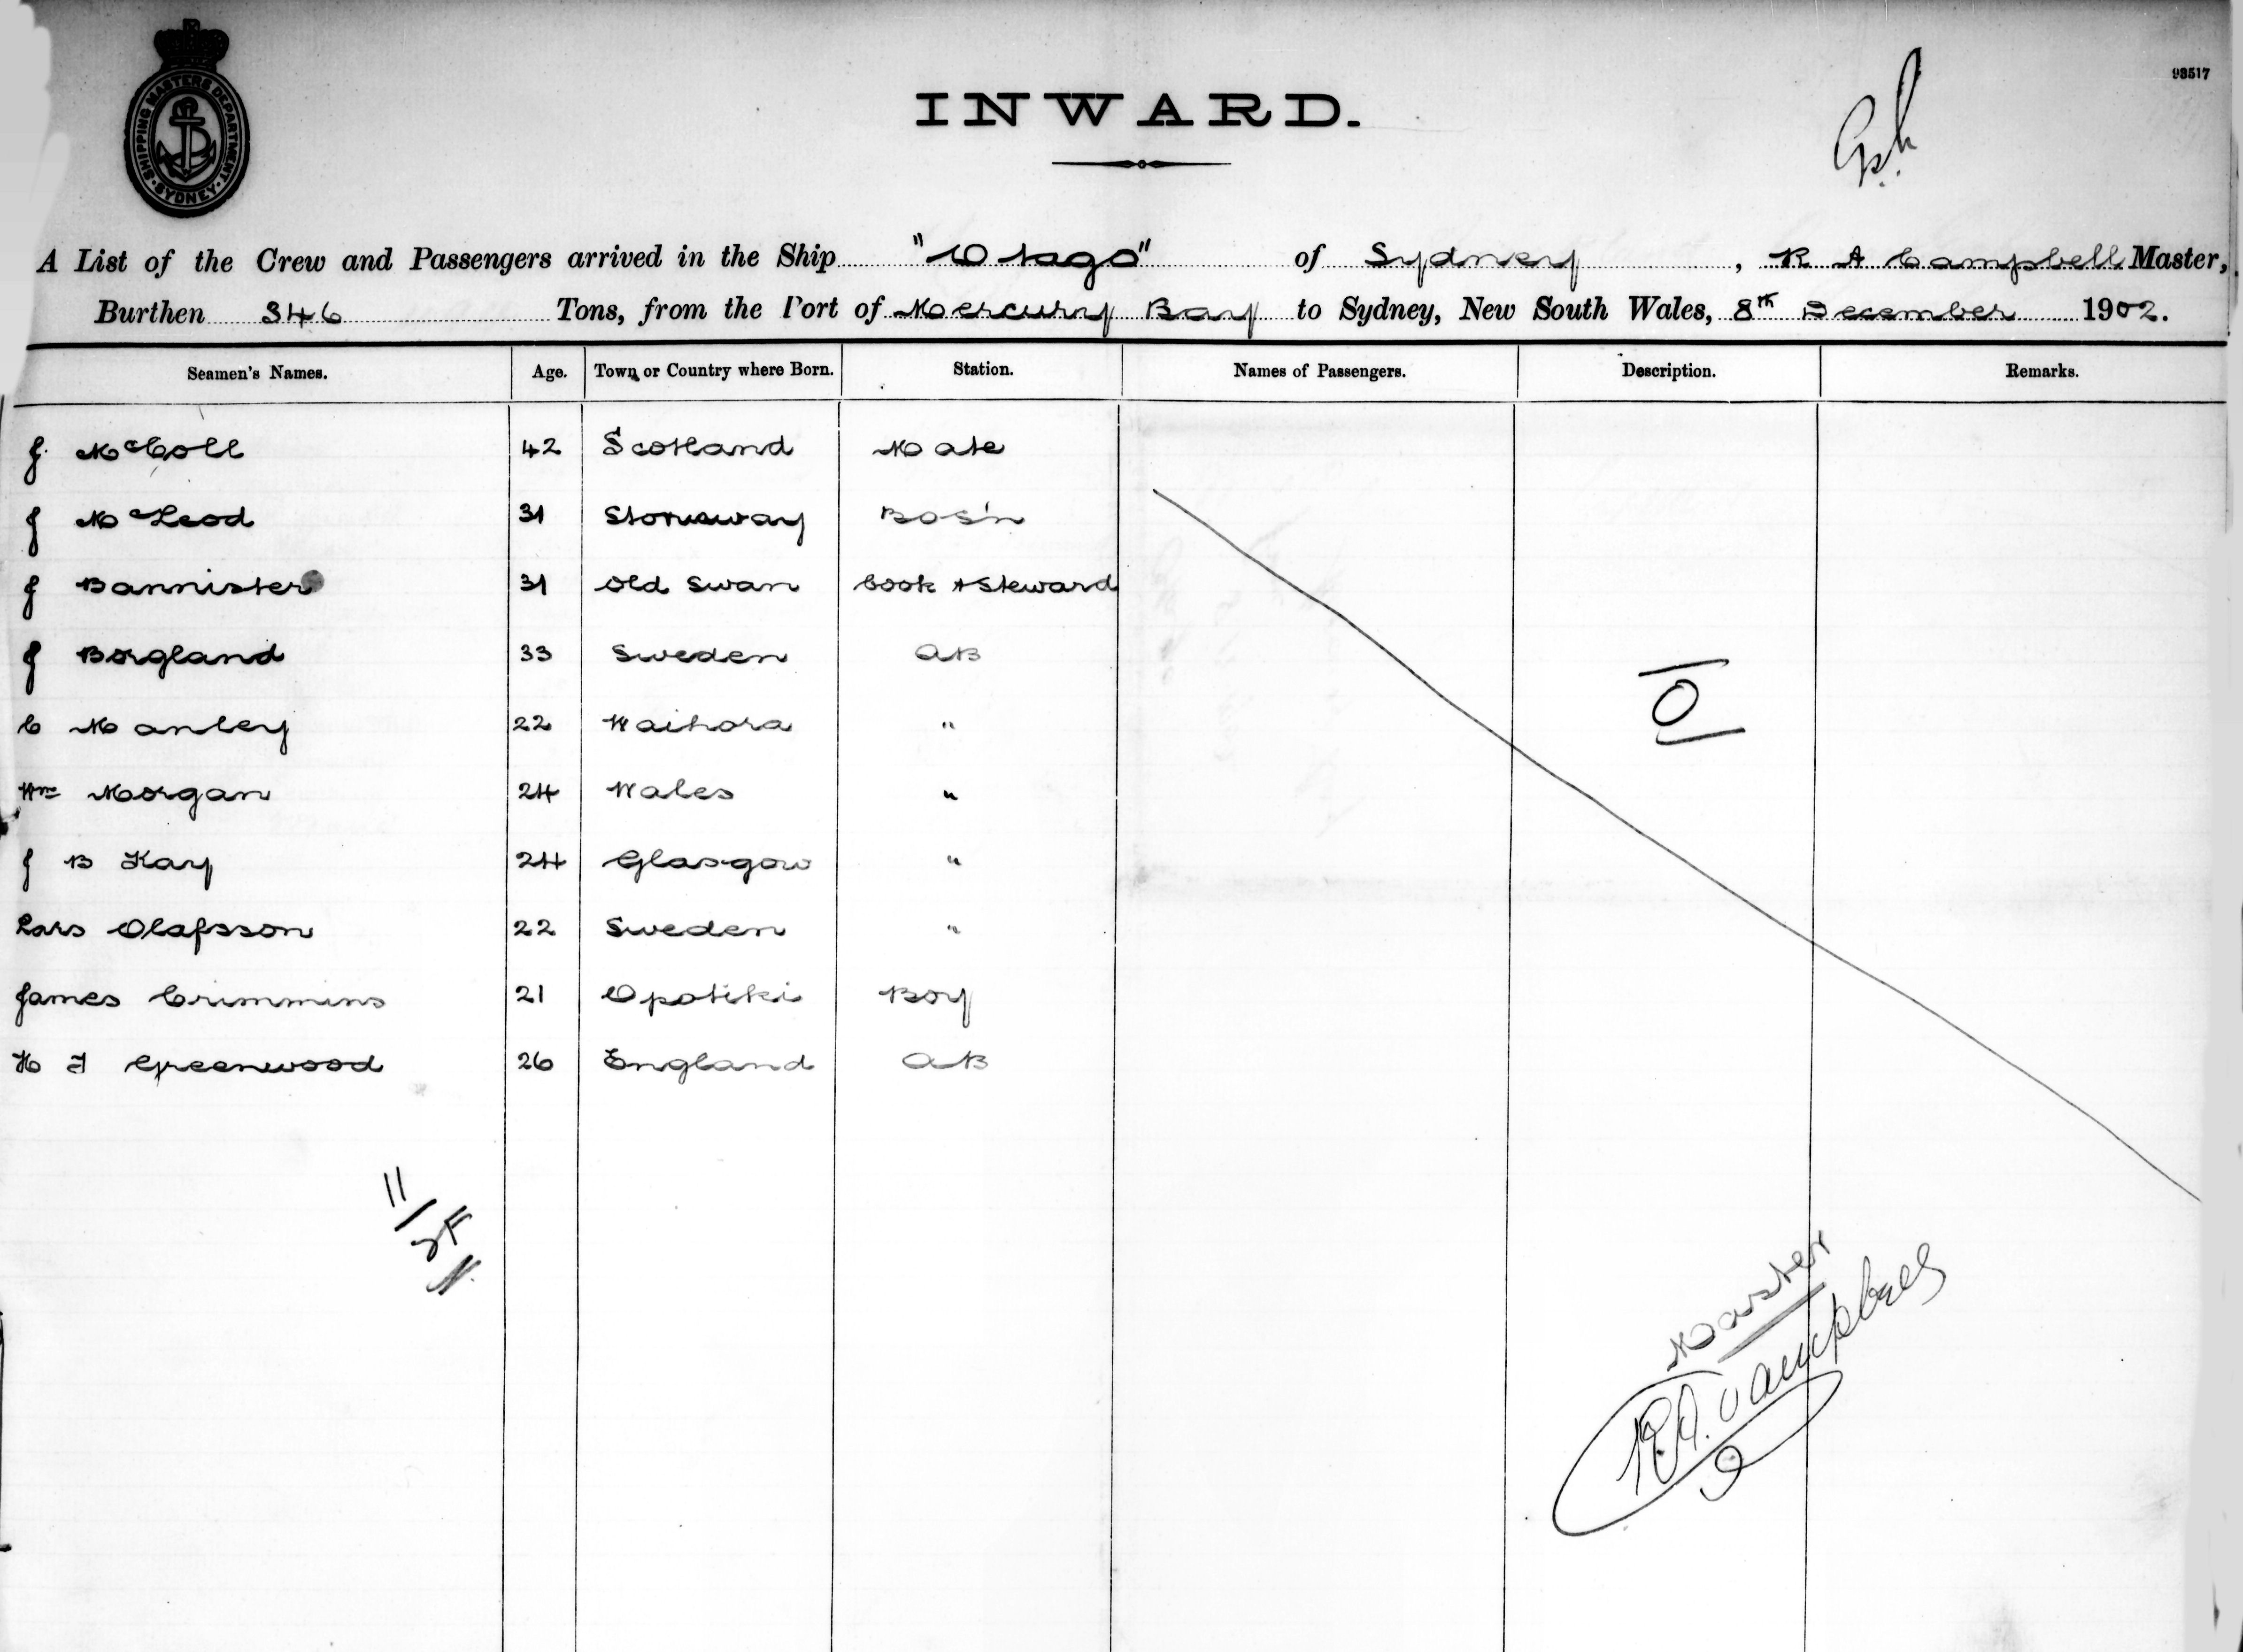 SHIPPING MASTERS DEPARTMENT
SYDNEY
93517
INWARD.
A List of the Crew and Passengers arrived in the Ship "Otago" of Sydney, R A Campbell Master,
Burthen 346 Tons, from the Port of Mercury Bay to Sydney, New South Wales, 8th December 1902.
Seamen's Names. Age. Town or Country where Born. Station. Names of Passengers. Description. Remarks.
J. McColl 42 Scotland Mate
J McLeod 31 Stornoway Bos'n
J Bannister 31 Old Swan Cook & Steward
J Borgland 33 Sweden AB
C Manley 22 Waihora "
Wm Morgan 24 Wales "
J B Kay 24 Glasgow "
Lars Olafsson 22 Sweden "
James Crimmins 21 Opotiki Boy
H F Greenwood 26 England AB
O
11
Master
R.A. Campbell